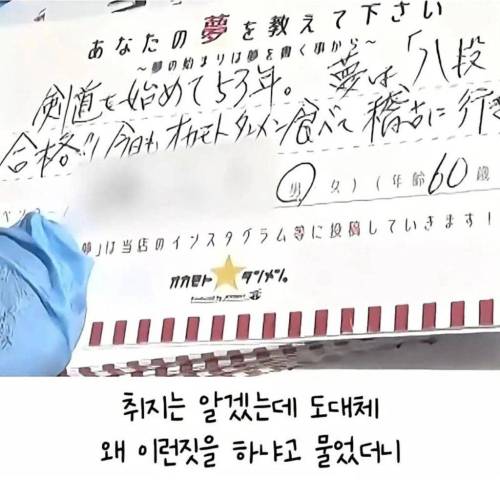 あなたの夢を教えて下さい
～夢の始まりは夢を書く事から～
剣道を始めて53年。夢は「八段
合格!! 今日もオカモトタンメン食べて稽古に行き
男 女）（年齢 60 歳
夢」は当店のインスタグラム等に投稿していきます！
オカモト★タンメン。
취지는 알겠는데 도대체
왜 이런짓을 하냐고 물었더니